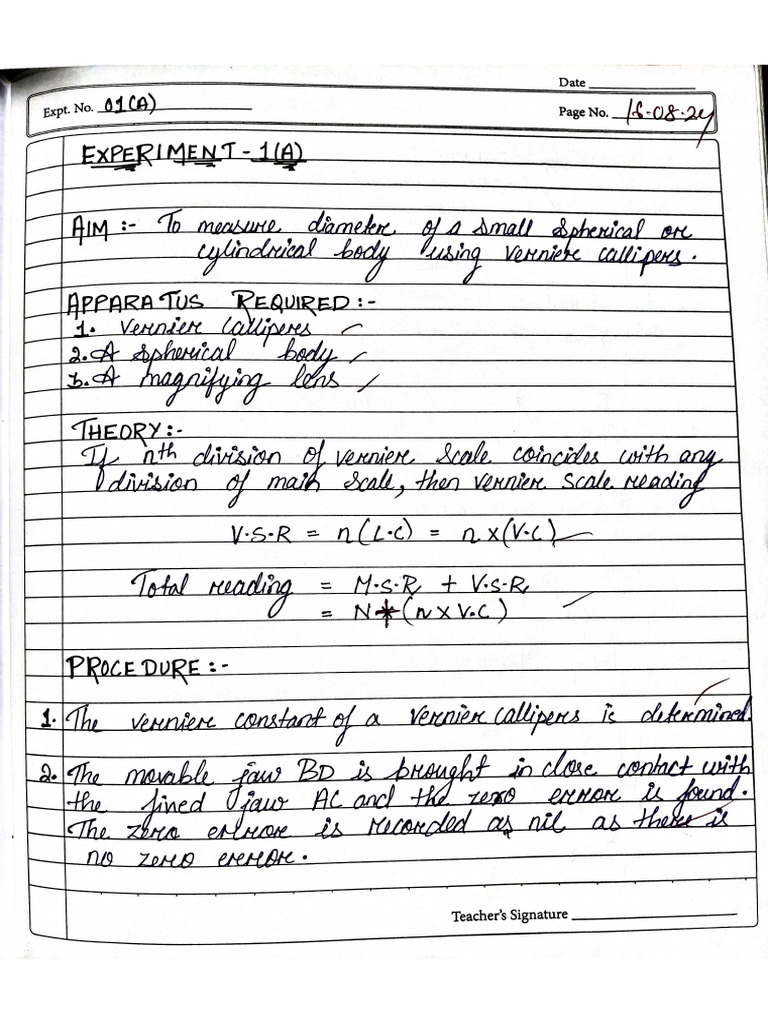 Date
Expt. No. 01(A)
Page No. 16-08-24
EXPERIMENT - 1(A)
AIM :- To measure diameter of a small spherical or
cylindrical body using vernier callipers.
APPARATUS REQUIRED :-
1. Vernier Callipers
2. A spherical body
3. A magnifying lens
THEORY :-
If nth division of vernier scale coincides with any
division of main scale, then vernier scale reading
V.S.R = n(L.C) = n x (V.C)
Total reading = M.S.R + V.S.R
= N + (n x V.C)
PROCEDURE :-
1. The vernier constant of a vernier callipers is determined.
2. The movable jaw BD is brought in close contact with
the fined jaw AC and the zero error is found.
The zero error is recorded as nil as there is
no zero error.
Teacher's Signature